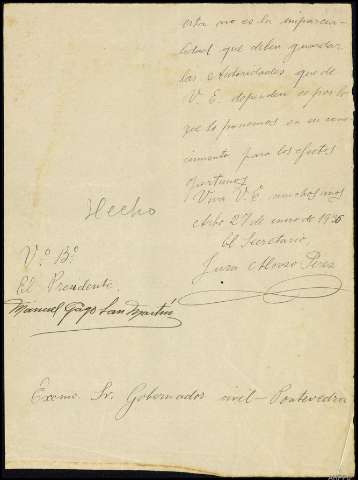 esta no es la imparcia-
lidad que deben guardar
las Autoridades que de
V. E. dependen es por lo
que lo ponemos en su cono-
cimiento para los efectos
oportunos
Viva V. E. muchos años
Arbo 27 de enero de 1936
El Secretario
Alonso Perez
Hecho
Vº Bº
El Presidente
Manuel Gago San Martín
Exemo Sr. Gobernador civil - Pontevedra